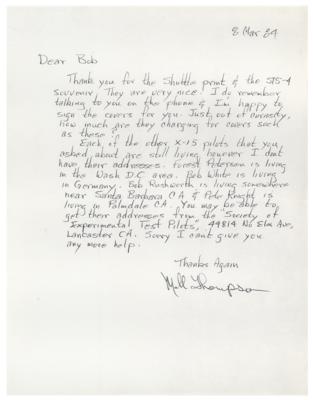 8 Mar 84
Dear Bob
Thank you for the Shuttle print & the STS-4
souvenir. They are very nice. I do remember
talking to you on the phone & I'm happy to
sign the covers for you. Just out of curiosity,
how much are they charging for covers such
as these?
Each of the other X-15 pilots that you
asked about are still living however I dont
have their addresses. Forest Petersen is living
in the Wash D.C. area. Bob White is living
in Germany. Bob Rushworth is living somewhere
near Santa Barbara CA & Pete Knight is
living in Palmdale CA. You may be able to
get their addresses from the "Society of
Experimental Test Pilots", 44814 No Elm Ave,
Lancaster CA. Sorry I cant give you
any more help.
Thanks Again
Milt Thompson